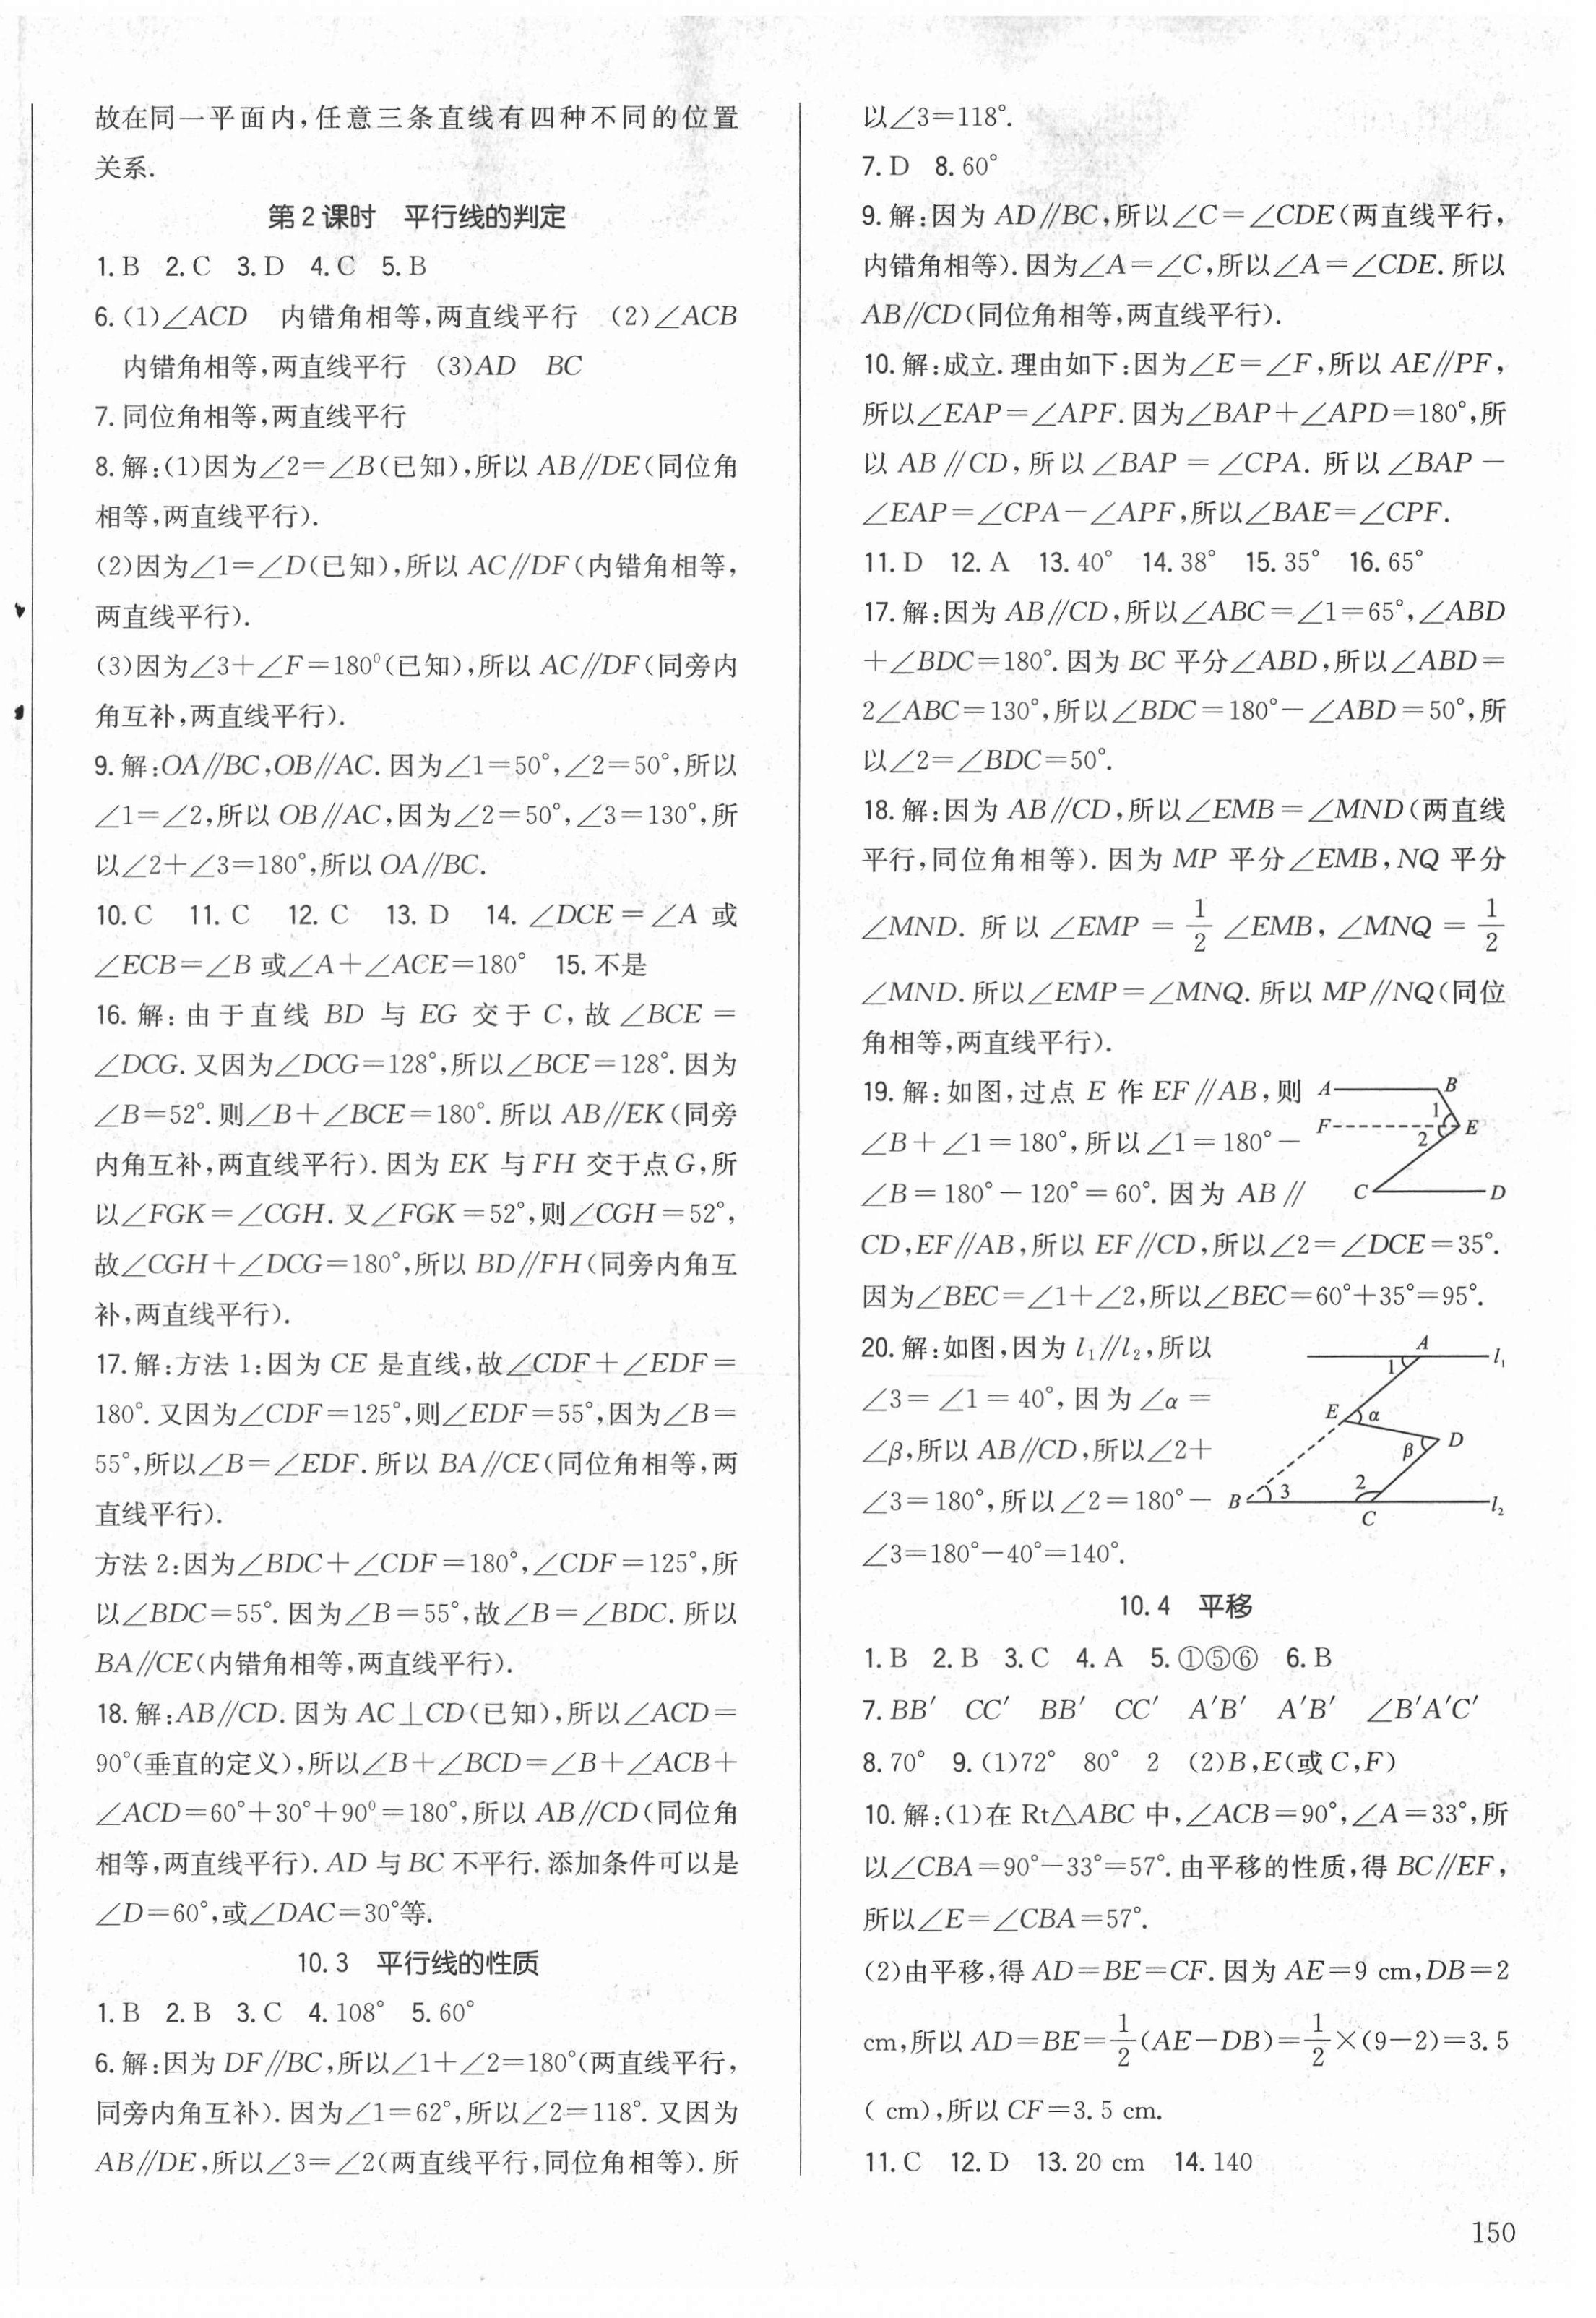 故在同一平面内,任意三条直线有四种不同的位置
关系.
第2课时 平行线的判定
1. B 2. C 3. D 4. C 5. B
6. (1)∠ACD 内错角相等,两直线平行 (2)∠ACB
内错角相等,两直线平行 (3)AD BC
7. 同位角相等,两直线平行
8. 解:(1)因为∠2=∠B(已知),所以 AB∥DE(同位角
相等,两直线平行).
(2)因为∠1=∠D(已知),所以 AC∥DF(内错角相等,
两直线平行).
(3)因为∠3+∠F=180⁰(已知),所以 AC∥DF(同旁内
角互补,两直线平行).
9. 解:OA∥BC,OB∥AC. 因为∠1=50°,∠2=50°,所以
∠1=∠2,所以 OB∥AC,因为∠2=50°,∠3=130°,所
以∠2+∠3=180°,所以 OA∥BC.
10. C 11. C 12. C 13. D 14. ∠DCE=∠A 或
∠ECB=∠B 或∠A+∠ACE=180° 15. 不是
16. 解:由于直线 BD 与 EG 交于 C,故∠BCE=
∠DCG. 又因为∠DCG=128°,所以∠BCE=128°. 因为
∠B=52°. 则∠B+∠BCE=180°. 所以 AB∥EK(同旁
内角互补,两直线平行). 因为 EK 与 FH 交于点 G,所
以∠FGK=∠CGH. 又∠FGK=52°,则∠CGH=52°,
故∠CGH+∠DCG=180°,所以 BD∥FH(同旁内角互
补,两直线平行).
17. 解:方法 1:因为 CE 是直线,故∠CDF+∠EDF=
180°. 又因为∠CDF=125°,则∠EDF=55°,因为∠B=
55°,所以∠B=∠EDF. 所以 BA∥CE(同位角相等,两
直线平行).
方法 2:因为∠BDC+∠CDF=180°,∠CDF=125°,所
以∠BDC=55°. 因为∠B=55°,故∠B=∠BDC. 所以
BA∥CE(内错角相等,两直线平行).
18. 解:AB∥CD. 因为 AC⊥CD(已知),所以∠ACD=
90°(垂直的定义),所以∠B+∠BCD=∠B+∠ACB+
∠ACD=60°+30°+90⁰=180°,所以 AB∥CD(同位角
相等,两直线平行). AD 与 BC 不平行. 添加条件可以是
∠D=60°,或∠DAC=30°等.
10.3 平行线的性质
1. B 2. B 3. C 4. 108° 5. 60°
6. 解:因为 DF∥BC,所以∠1+∠2=180°(两直线平行,
同旁内角互补). 因为∠1=62°,所以∠2=118°. 又因为
AB∥DE,所以∠3=∠2(两直线平行,同位角相等). 所
以∠3=118°.
7. D 8. 60°
9. 解:因为 AD∥BC,所以∠C=∠CDE(两直线平行,
内错角相等). 因为∠A=∠C,所以∠A=∠CDE. 所以
AB∥CD(同位角相等,两直线平行).
10. 解:成立. 理由如下:因为∠E=∠F,所以 AE∥PF,
所以∠EAP=∠APF. 因为∠BAP+∠APD=180°,所
以 AB∥CD,所以∠BAP=∠CPA. 所以∠BAP-
∠EAP=∠CPA-∠APF,所以∠BAE=∠CPF.
11. D 12. A 13. 40° 14. 38° 15. 35° 16. 65°
17. 解:因为 AB∥CD,所以∠ABC=∠1=65°,∠ABD
+∠BDC=180°. 因为 BC 平分∠ABD,所以∠ABD=
2∠ABC=130°,所以∠BDC=180°-∠ABD=50°,所
以∠2=∠BDC=50°.
18. 解:因为 AB∥CD,所以∠EMB=∠MND(两直线
平行,同位角相等). 因为 MP 平分∠EMB,NQ 平分
∠MND. 所以∠EMP=1/2∠EMB,∠MNQ=1/2
∠MND. 所以∠EMP=∠MNQ. 所以 MP∥NQ(同位
角相等,两直线平行).
19. 解:如图,过点 E 作 EF∥AB,则
∠B+∠1=180°,所以∠1=180°-
∠B=180°-120°=60°. 因为 AB∥
CD,EF∥AB,所以 EF∥CD,所以∠2=∠DCE=35°.
因为∠BEC=∠1+∠2,所以∠BEC=60°+35°=95°.
A B
1
F 2 E
C D
20. 解:如图,因为 l₁∥l₂,所以
∠3=∠1=40°,因为∠α=
∠β,所以 AB∥CD,所以∠2+
∠3=180°,所以∠2=180°-
∠3=180°-40°=140°.
A
1 l₁
E α
β D
B 3 2 l₂
C
10.4 平移
1. B 2. B 3. C 4. A 5. ①⑤⑥ 6. B
7. BB′ CC′ BB′ CC′ A′B′ A′B′ ∠B′A′C′
8. 70° 9. (1)72° 80° 2 (2)B,E(或 C,F)
10. 解:(1)在 Rt△ABC 中,∠ACB=90°,∠A=33°,所
以∠CBA=90°-33°=57°. 由平移的性质,得 BC∥EF,
所以∠E=∠CBA=57°.
(2)由平移,得 AD=BE=CF. 因为 AE=9 cm,DB=2
cm,所以 AD=BE=1/2(AE-DB)=1/2×(9-2)=3.5
( cm),所以 CF=3.5 cm.
11. C 12. D 13. 20 cm 14. 140
150